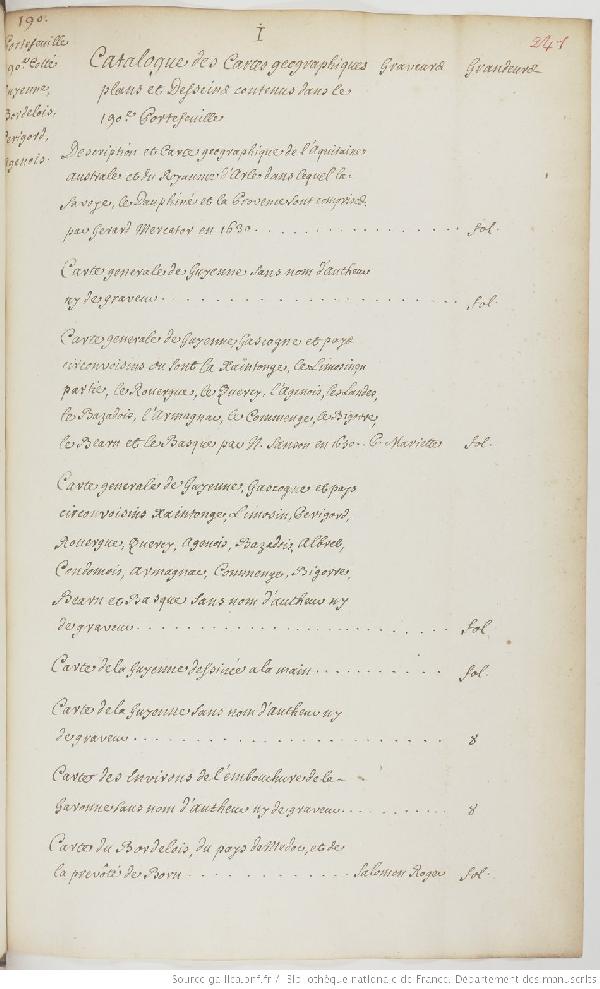 190.
I
247
Portefeuille
190.e Cotté
Guyenne,
Bordelois,
Perigord,
Agenois.
Catalogue des Cartes geographiques Graveurs Grandeurs
plans et Desseins contenus dans le
190.e Portefeuille
Description et Carte geographique de l'Aquitaine
Australe et du Royaume d'Arles dans lequel la
Savoye, le Dauphiné et la Provence sont comprises
par Gerard Mercator en 1630. fol.
Carte generale de Guyenne sans nom d'autheur
ny de graveur. fol.
Carte generale de Guyenne Gascogne et pays
circonvoisins ou sont la Xaintonge, le Limosin en
partie, le Rouergue, le Quercy, l'Agenois, les Landes,
le Bazadois, l'Armagnac, le Commenge, le Bigorre,
le Bearn et le Basque par N. Sanson en 1650. P. Mariette fol.
Carte generale de Guyenne, Gascogne et pays
circonvoisins Xaintonge, Limosin, Perigord,
Rouergue, Quercy, Agenois, Bazadois, Albret,
Condomois, Armagnac, Commenge, Bigorre,
Bearn et Basque sans nom d'autheur ny
de graveur. fol
Carte de la Guyenne dessinée a la main. fol.
Carte de la Guyenne sans nom d'autheur ny
de graveur. 8
Carte des Environs de l'embouchure de la
Garonne sans nom d'autheur ny de graveur. 8
Carte du Bordelois, du pays de Medoc, et de
la prevôté de Born. Salomon Roger fol.
Source gallica.bnf.fr / Bibliothèque nationale de France. Département des manuscrits